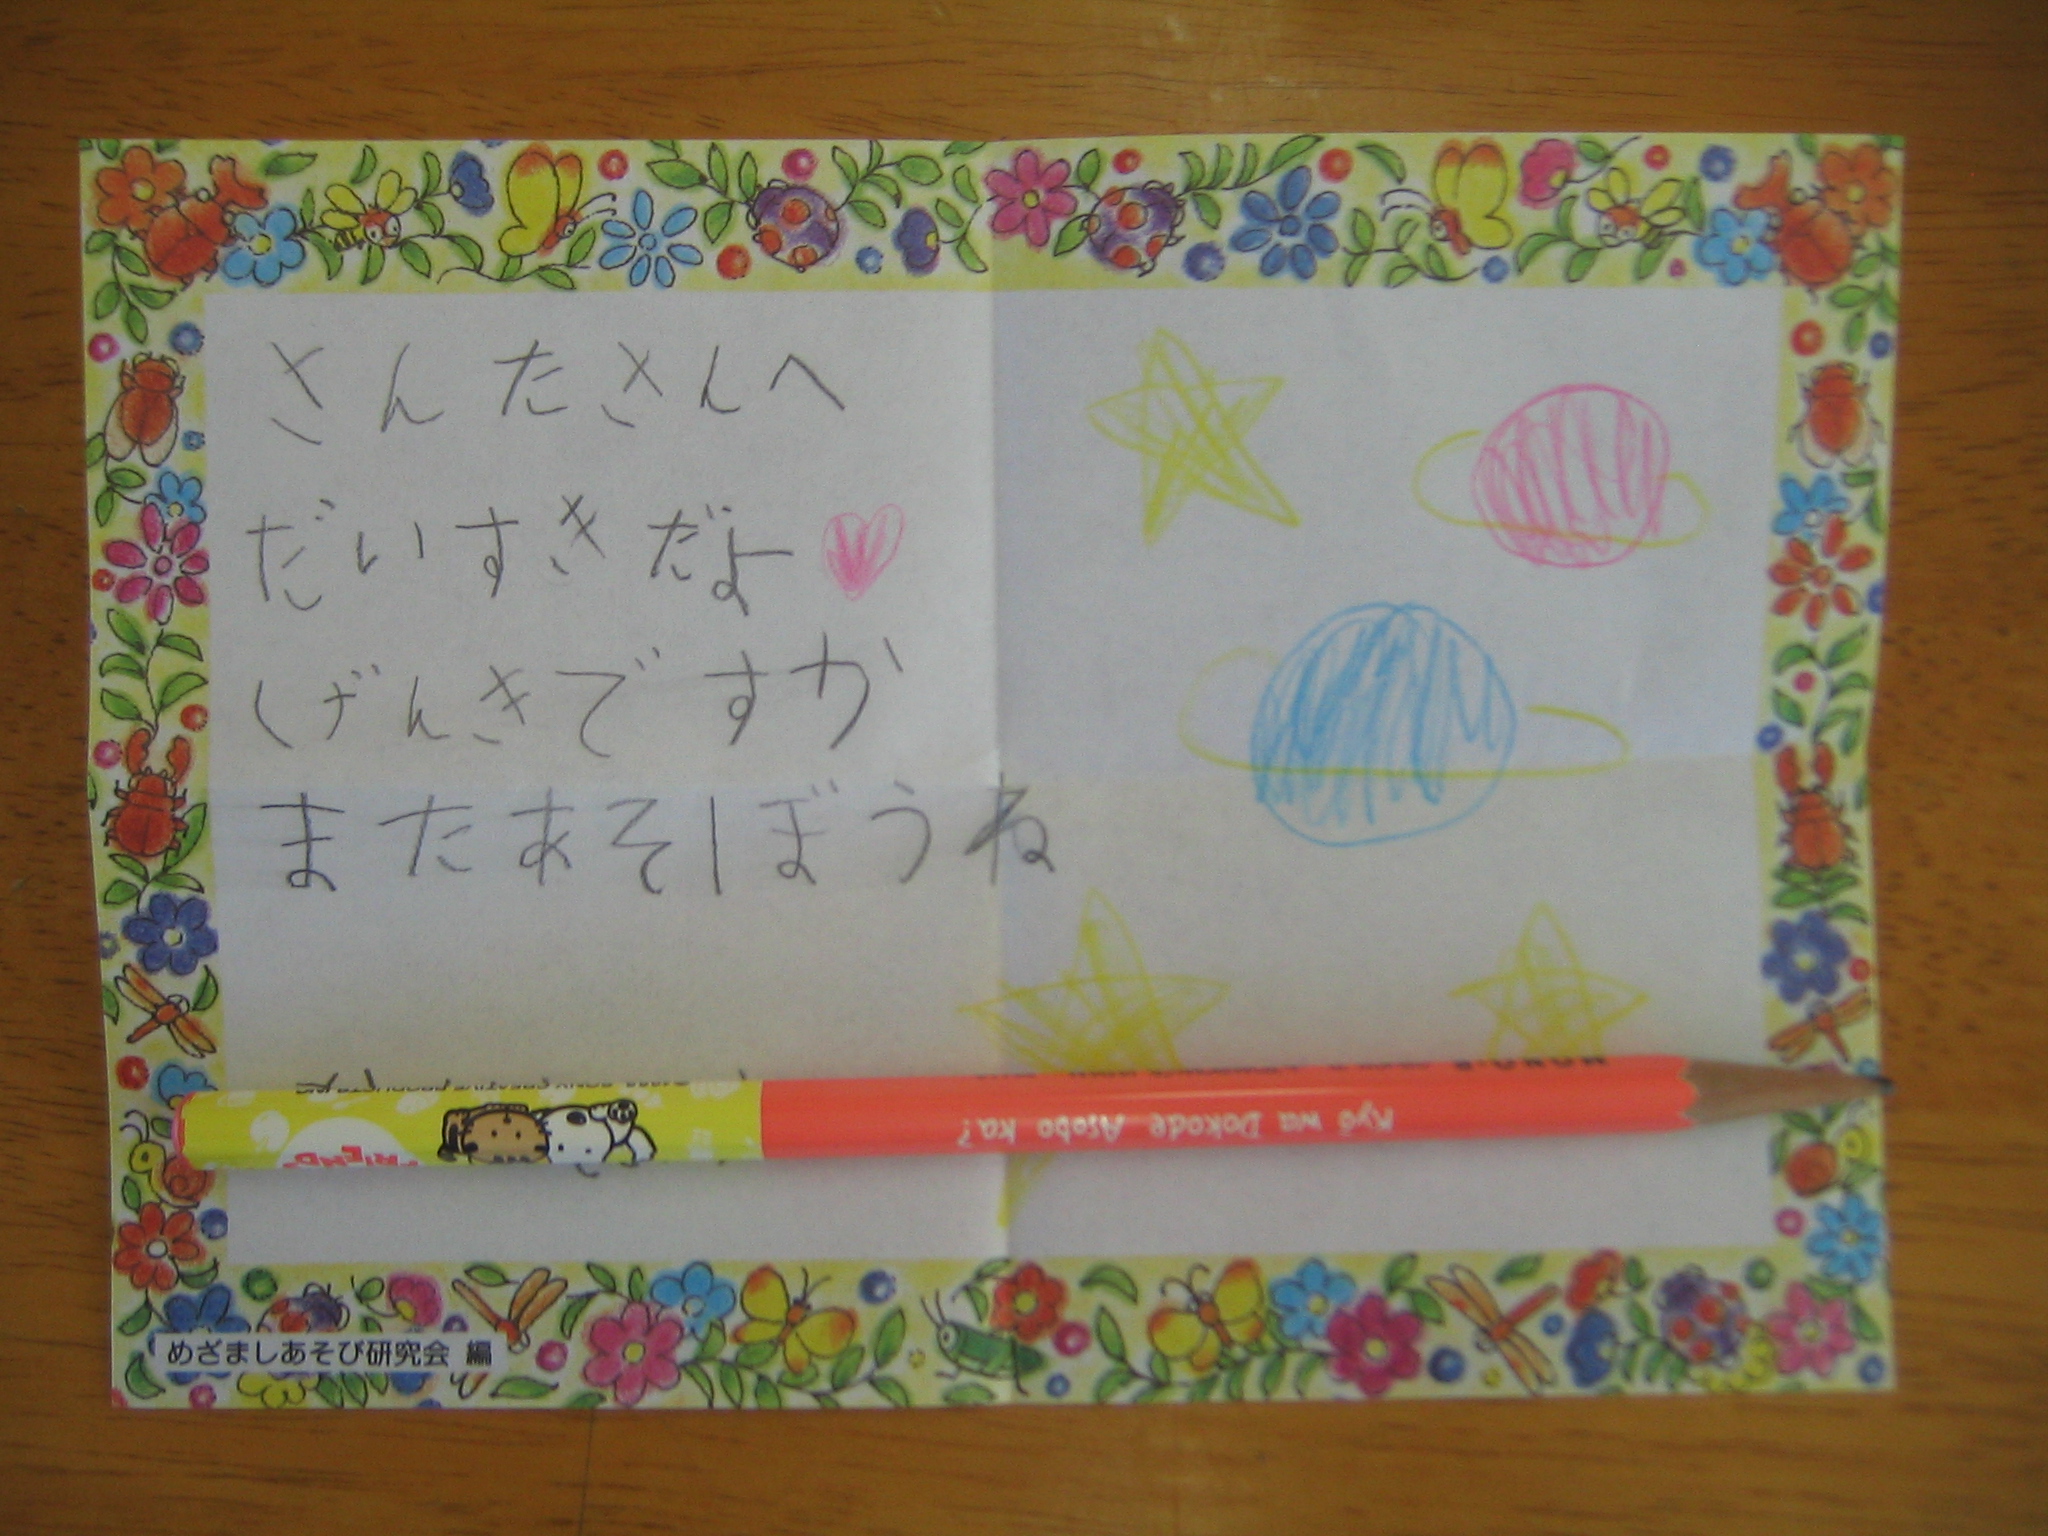 さんたさんへ
だいすきだよ
げんきですか
またあそぼうね
Kyō wa Dokode Asobo ka?
めざましあそび研究会 編